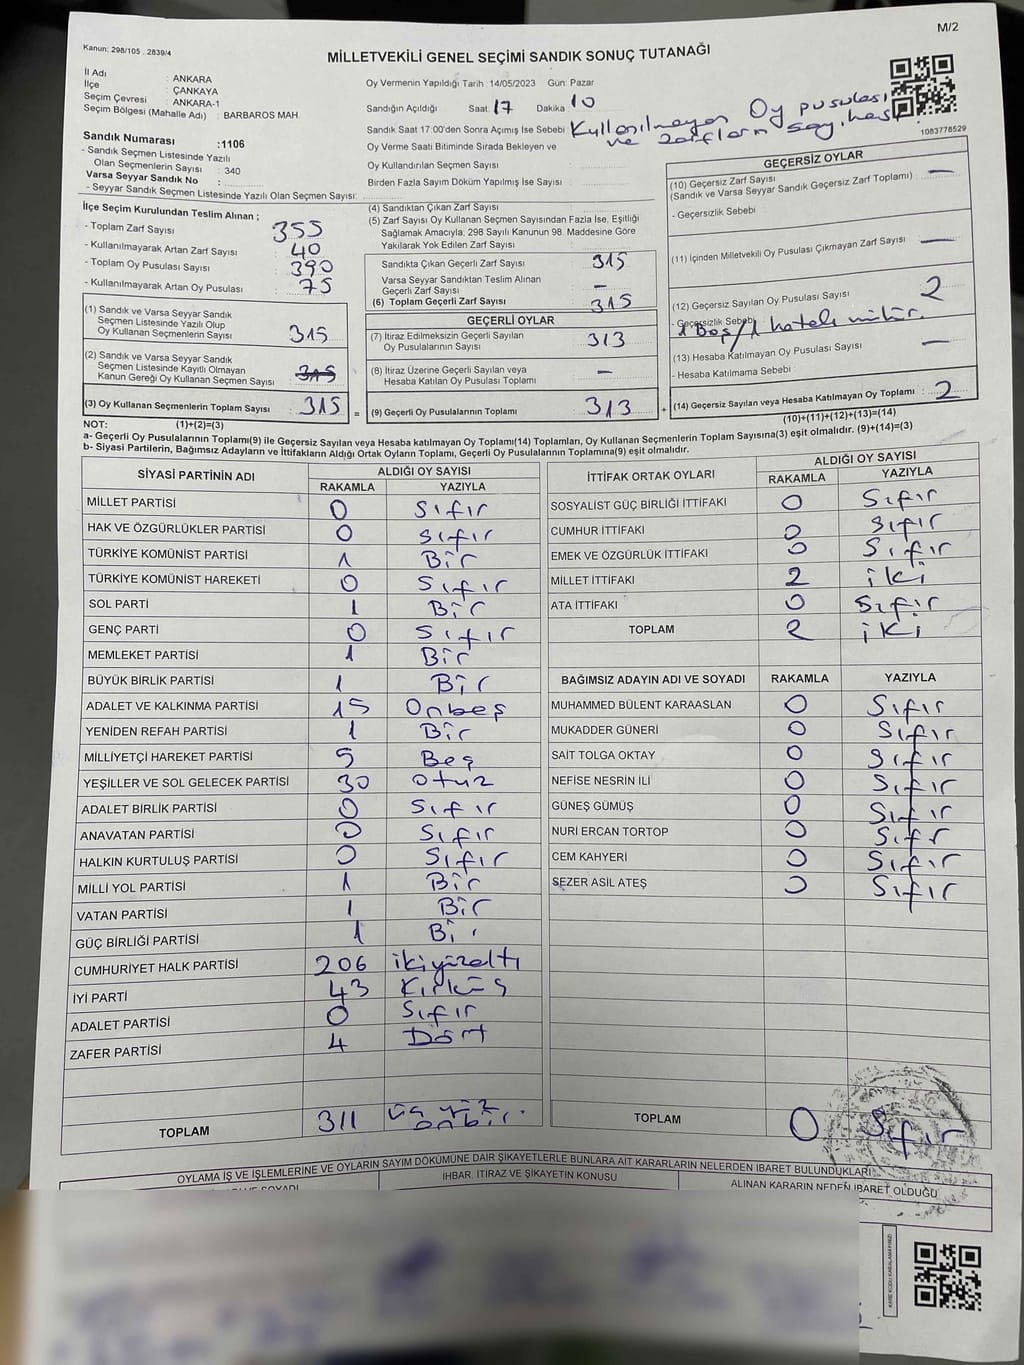 M/2
Kanun: 298/105 . 2839/4
MİLLETVEKİLİ GENEL SEÇİMİ SANDIK SONUÇ TUTANAĞI
İl Adı : ANKARA
İlçe : ÇANKAYA
Seçim Çevresi : ANKARA-1
Seçim Bölgesi (Mahalle Adı) : BARBAROS MAH
Sandık Numarası :1106
- Sandık Seçmen Listesinde Yazılı
Olan Seçmenlerin Sayısı : 340
Varsa Seyyar Sandık No :
- Seyyar Sandık Seçmen Listesinde Yazılı Olan Seçmen Sayısı:
Oy Vermenin Yapıldığı Tarih 14/05/2023 Gün: Pazar
Sandığın Açıldığı Saat: 17 Dakika 10
Sandık Saat 17:00'den Sonra Açımış İse Sebebi Kullanılmayan Oy pusulası
ve zarfların sayılması
Oy Verme Saati Bitiminde Sırada Bekleyen ve
Oy Kullandırılan Seçmen Sayısı
Birden Fazla Sayım Döküm Yapılmış İse Sayısı :
1083778529
İlçe Seçim Kurulundan Teslim Alınan ;
- Toplam Zarf Sayısı 355
- Kullanılmayarak Artan Zarf Sayısı 40
- Toplam Oy Pusulası Sayısı 390
- Kullanılmayarak Artan Oy Pusulası : 75
(1) Sandık ve Varsa Seyyar Sandık
Seçmen Listesinde Yazılı Olup
Oy Kullanan Seçmenlerin Sayısı 315
(2) Sandık ve Varsa Seyyar Sandık
Seçmen Listesinde Kayıtlı Olmayan
Kanun Gereği Oy Kullanan Seçmen Sayısı : 315
(3) Oy Kullanan Seçmenlerin Toplam Sayısı : 315 =
(4) Sandıktan Çıkan Zarf Sayısı
(5) Zarf Sayısı Oy Kullanan Seçmen Sayısından Fazla İse, Eşitliği
Sağlamak Amacıyla, 298 Sayılı Kanunun 98. Maddesine Göre
Yakılarak Yok Edilen Zarf Sayısı :
Sandıkta Çıkan Geçerli Zarf Sayısı 315
Varsa Seyyar Sandıktan Teslim Alınan
Geçerli Zarf Sayısı : -
(6) Toplam Geçerli Zarf Sayısı 315
GEÇERLİ OYLAR
(7) İtiraz Edilmeksizin Geçerli Sayılan
Oy Pusulalarının Sayısı 313
(8) İtiraz Üzerine Geçerli Sayılan veya
Hesaba Katılan Oy Pusulası Toplamı -
(9) Geçerli Oy Pusulalarının Toplamı 313 +
GEÇERSİZ OYLAR
(10) Geçersiz Zarf Sayısı -
(Sandık ve Varsa Seyyar Sandık Geçersiz Zarf Toplamı)
- Geçersizlik Sebebi
(11) İçinden Milletvekili Oy Pusulası Çıkmayan Zarf Sayısı -
(12) Geçersiz Sayılan Oy Pusulası Sayısı 2
- Geçersizlik Sebebi 1 Boş/1 hatalı mühür.
(13) Hesaba Katılmayan Oy Pusulası Sayısı -
- Hesaba Katılmama Sebebi
(14) Geçersiz Sayılan veya Hesaba Katılmayan Oy Toplamı : 2
NOT: (1)+(2)=(3)
(10)+(11)+(12)+(13)=(14)
a- Geçerli Oy Pusulalarının Toplamı(9) ile Geçersiz Sayılan veya Hesaba katılmayan Oy Toplamı(14) Toplamları, Oy Kullanan Seçmenlerin Toplam Sayısına(3) eşit olmalıdır. (9)+(14)=(3)
b- Siyasi Partilerin, Bağımsız Adayların ve İttifakların Aldığı Ortak Oyların Toplamı, Geçerli Oy Pusulalarının Toplamına(9) eşit olmalıdır.
SİYASİ PARTİNİN ADI ALDIĞI OY SAYISI
RAKAMLA YAZIYLA
MİLLET PARTİSİ 0 Sıfır
HAK VE ÖZGÜRLÜKLER PARTİSİ 0 Sıfır
TÜRKİYE KOMÜNİST PARTİSİ 1 Bir
TÜRKİYE KOMÜNİST HAREKETİ 0 Sıfır
SOL PARTİ 1 Bir
GENÇ PARTİ 0 Sıfır
MEMLEKET PARTİSİ 1 Bir
BÜYÜK BİRLİK PARTİSİ 1 Bir
ADALET VE KALKINMA PARTİSİ 15 Onbeş
YENİDEN REFAH PARTİSİ 1 Bir
MİLLİYETÇİ HAREKET PARTİSİ 5 Beş
YEŞİLLER VE SOL GELECEK PARTİSİ 30 Otuz
ADALET BİRLİK PARTİSİ 0 Sıfır
ANAVATAN PARTİSİ 0 Sıfır
HALKIN KURTULUŞ PARTİSİ 0 Sıfır
MİLLİ YOL PARTİSİ 1 Bir
VATAN PARTİSİ 1 Bir
GÜÇ BİRLİĞİ PARTİSİ 1 Bir
CUMHURİYET HALK PARTİSİ 206 ikiyüzaltı
İYİ PARTİ 43 Kırküç
ADALET PARTİSİ 0 Sıfır
ZAFER PARTİSİ 4 Dört
TOPLAM 311 üç yüz
onbir.
İTTİFAK ORTAK OYLARI ALDIĞI OY SAYISI
RAKAMLA YAZIYLA
SOSYALİST GÜÇ BİRLİĞİ İTTİFAKI 0 Sıfır
CUMHUR İTTİFAKI 0 Sıfır
EMEK VE ÖZGÜRLÜK İTTİFAKI 0 Sıfır
MİLLET İTTİFAKI 2 iki
ATA İTTİFAKI 0 Sıfır
TOPLAM 2 iki
BAĞIMSIZ ADAYIN ADI VE SOYADI RAKAMLA YAZIYLA
MUHAMMED BÜLENT KARAASLAN 0 Sıfır
MUKADDER GÜNERİ 0 Sıfır
SAİT TOLGA OKTAY 0 Sıfır
NEFİSE NESRİN İLİ 0 Sıfır
GÜNEŞ GÜMÜŞ 0 Sıfır
NURİ ERCAN TORTOP 0 Sıfr
CEM KAHYERİ 0 Sıfır
SEZER ASİL ATEŞ 0 Sıfır
TOPLAM 0 Sıfır
OYLAMA İŞ VE İŞLEMLERİNE VE OYLARIN SAYIM DÖKÜMÜNE DAİR ŞİKAYETLERLE BUNLARA AİT KARARLARIN NELERDEN İBARET BULUNDUKLARI
İHBAR, İTİRAZ VE ŞİKAYETİN KONUSU
ALINAN KARARIN NEDEN İBARET OLDUĞU